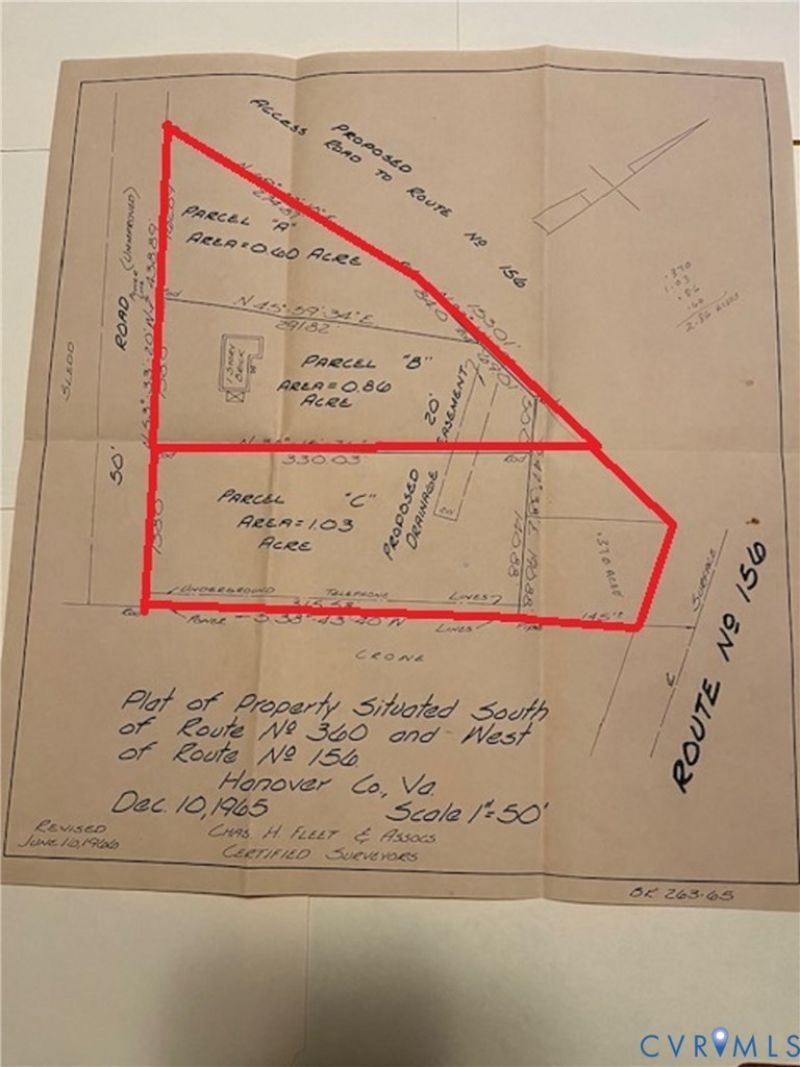 ACCESS PROPOSED
ROAD TO ROUTE Nº 156
PARCEL "A"
AREA = 0.60 ACRE
ROAD
(UNIMPROVED)
SLEDD
50'
N 45°-59'-34" E
291.82
153.01
1 STORY
BRICK
PARCEL "B"
AREA = 0.86
ACRE
20'
EASEMENT
PROPOSED
DRAINAGE
330.03
PARCEL "C"
AREA = 1.03
ACRE
.370
1.03
.86
.60
2.86 ACRES
.370 ACRE
UNDERGROUND TELEPHONE LINES
315.58
145'
ROD
POWER
LINES
PIPE
CRONE
SURFACE
ROUTE Nº 156
Plat of Property Situated South
of Route Nº 360 and West
of Route Nº 156
Hanover Co., Va.
Dec. 10, 1965 Scale 1"=50'
REVISED
JUNE 10, 1966
CHAS. H. FLEET & ASSOCS
CERTIFIED SURVEYORS
BK 263-65
CVRMLS